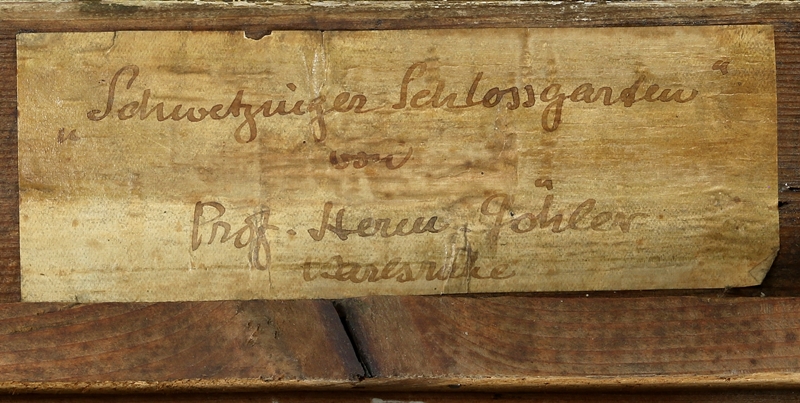 „Schwetzinger Schlossgarten“
von
Prof. Herm. Göhler
Karlsruhe